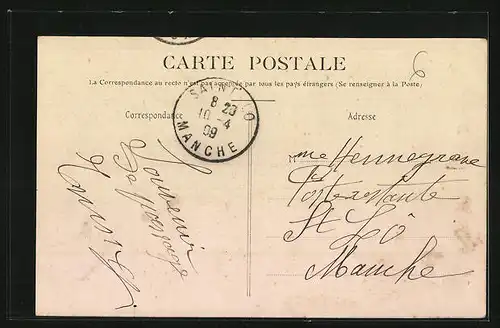 CARTE POSTALE
La Correspondance au recto n'est pas acceptée par tous les pays étrangers (Se renseigner à la Poste)
6
SAINT-LO
8 20
10 -4
09
MANCHE
Correspondance
Adresse
Souvenir
M me Hennegrave
Poste restante
St Lô
Manche